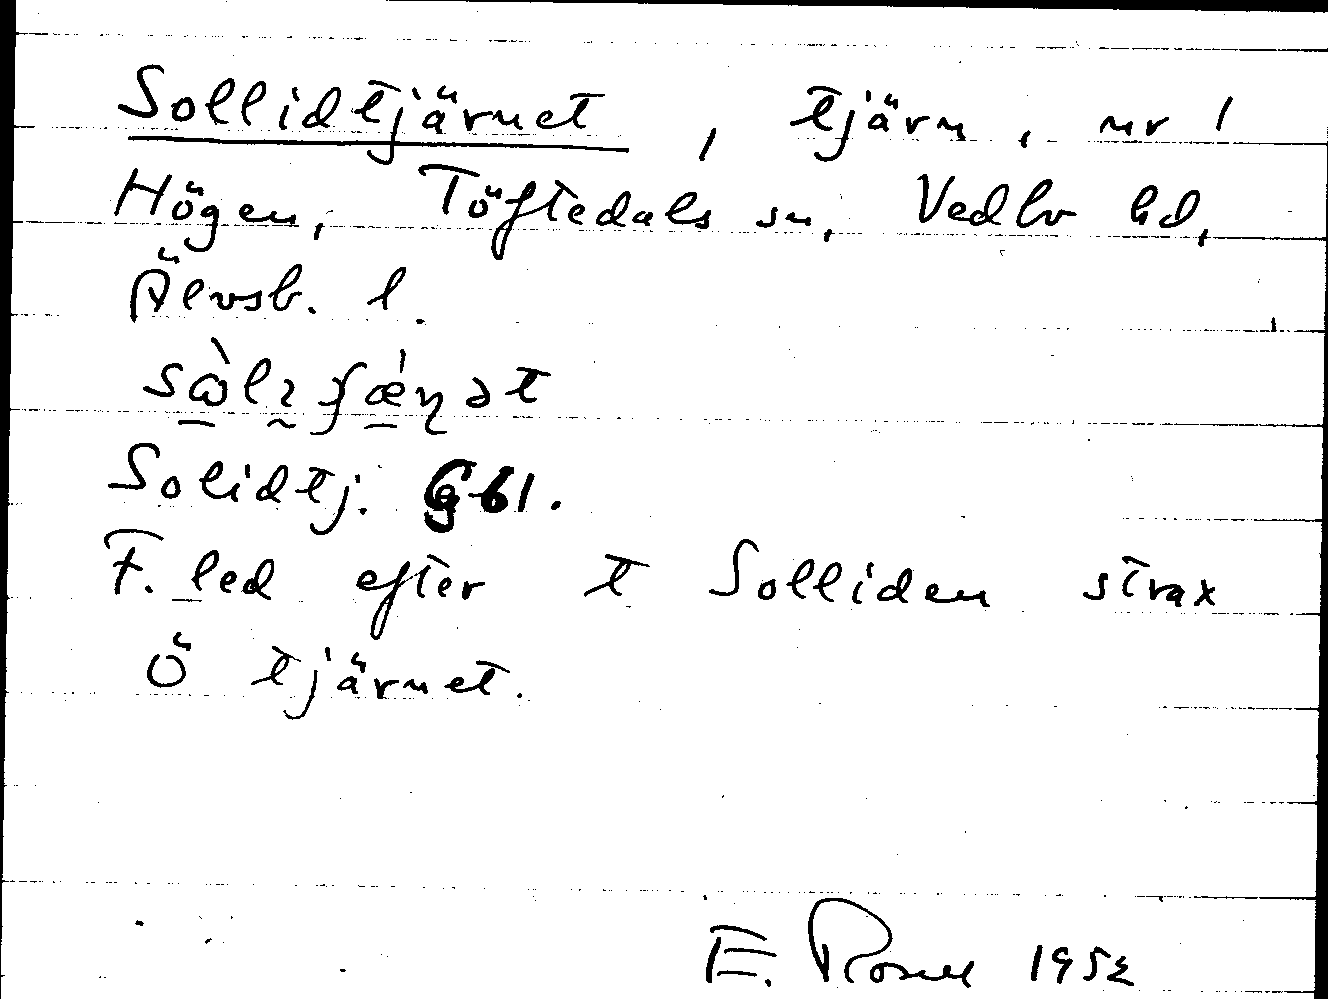 Sollidtjärnet, tjärn, nr 1
Högen, Töftedals sn, Vedbo hd,
Älvsb. l.
Solidtj. Gb1.
F. led efter t Solliden strax
Ö tjärnet.
E. Rosell 1952